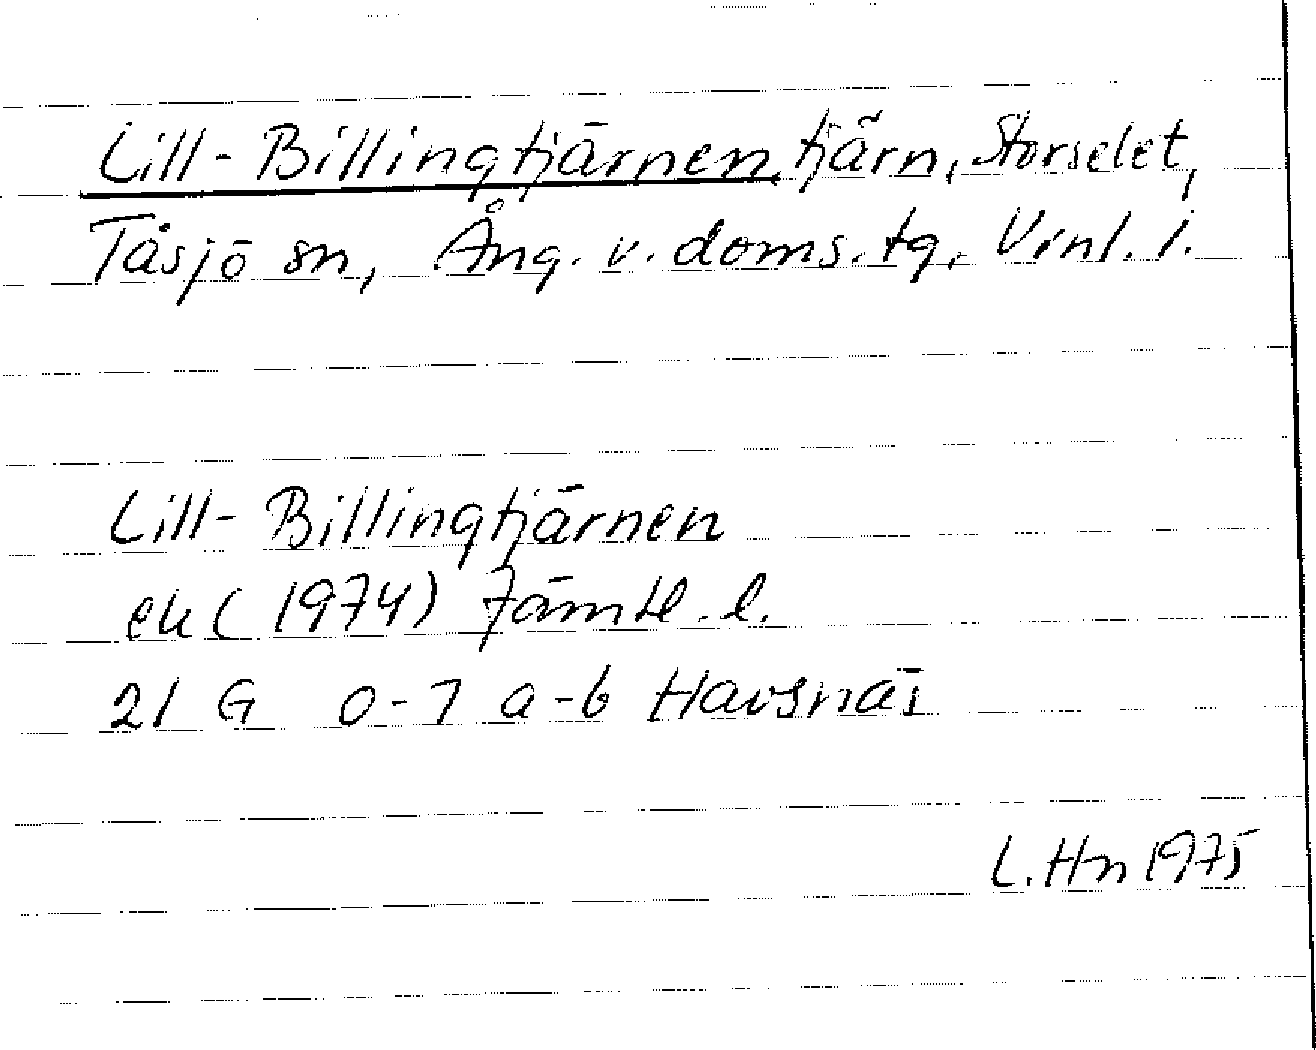 Lill-Billingtjärnen, tjärn, Storselet,
Tåsjö sn, Ång. v. doms.tg, Vrnl. l.
Lill-Billingtjärnen
ek (1974) Jämtl. l.
21 G 0-7 a-b Havsnäs
L. Hn 1975